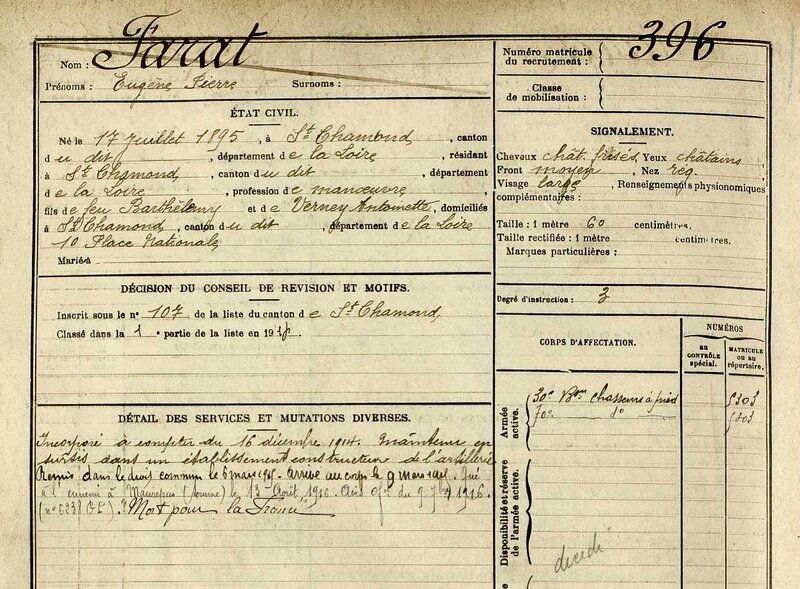 Nom : Farat
Prénoms : Eugène Pierre Surnoms :
Numéro matricule du recrutement : 396
Classe de mobilisation :
ÉTAT CIVIL.
Né le 17 juillet 1895, à St Chamond, canton
du dit, département de la Loire, résidant
à St Chamond, canton du dit, département
de la Loire, profession de manœuvre
fils de feu Barthélemy et de Verney Antoinette, domiciliés
à St Chamond, canton du dit, département de la Loire
10 Place Nationale
Marié à
SIGNALEMENT.
Cheveux chât. frisés, Yeux châtains,
Front moyen, Nez reg.
Visage large, Renseignements physionomiques
complémentaires :
Taille : 1 mètre 60 centimètres.
Taille rectifiée : 1 mètre centimètres.
Marques particulières :
DÉCISION DU CONSEIL DE REVISION ET MOTIFS.
Inscrit sous le n° 107 de la liste du canton de St Chamond,
Classé dans la 1e partie de la liste en 191
Degré d'instruction : 3
CORPS D'AFFECTATION.
NUMÉROS
AU CONTRÔLE spécial.
MATRICULE OU AU répertoire.
Armée active.
30e Bon Chasseurs à pied 5303
70e do
Disponibilité et réserve de l'armée active.
decédé
DÉTAIL DES SERVICES ET MUTATIONS DIVERSES.
Incorporé à compter du 16 décembre 1914. Maintenu en
sursis dans un établissement constructeur de l'artillerie
Remis dans le droit commun le 6 mars 1915. Arrivé au corps le 9 Mars 1915. Tué
à l'ennemi à Maurepas (Somme) le 13 Août 1916. du 9 7bre 1916.
Mort pour la France